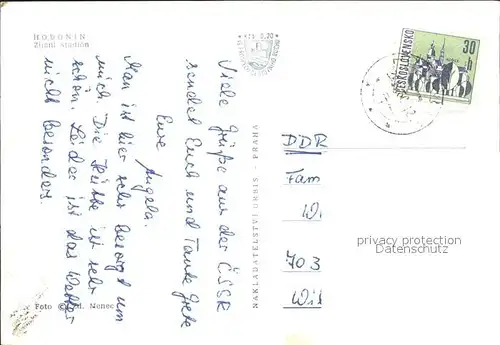 HODONIN
Zimní stadion
Viele Grüße aus der ČSSR
sendet Euch und Tante Grete
Eure Angela.
Man ist hier sehr besorgt um
mich. Die Hütte ist sehr
schön. Leider ist das Wetter
nicht besonders.
Foto © Nenec
NAKLADATELSTVÍ ORBIS - PRAHA
Kčs 0,20
ČESKOSLOVENSKO
30
h
DDR
Fam
W.
703
privacy protection
Datenschutz